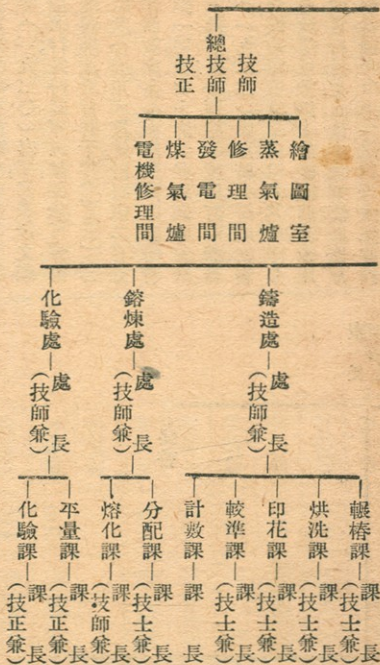 技師
總技師
技正
繪圖室
蒸氣爐
修理間
發電間
煤氣爐
電機修理間
鑄造處
處長
(技師兼)
鎔煉處
處長
(技師兼)
化驗處
處長
(技師兼)
輾樁課
課長
(技士兼)
烘洗課
課長
(技士兼)
印花課
課長
(技士兼)
較準課
課長
(技士兼)
計數課
課長
分配課
課長
(技士兼)
熔化課
課長
(技師兼)
平量課
課長
(技正兼)
化驗課
課長
(技正兼)